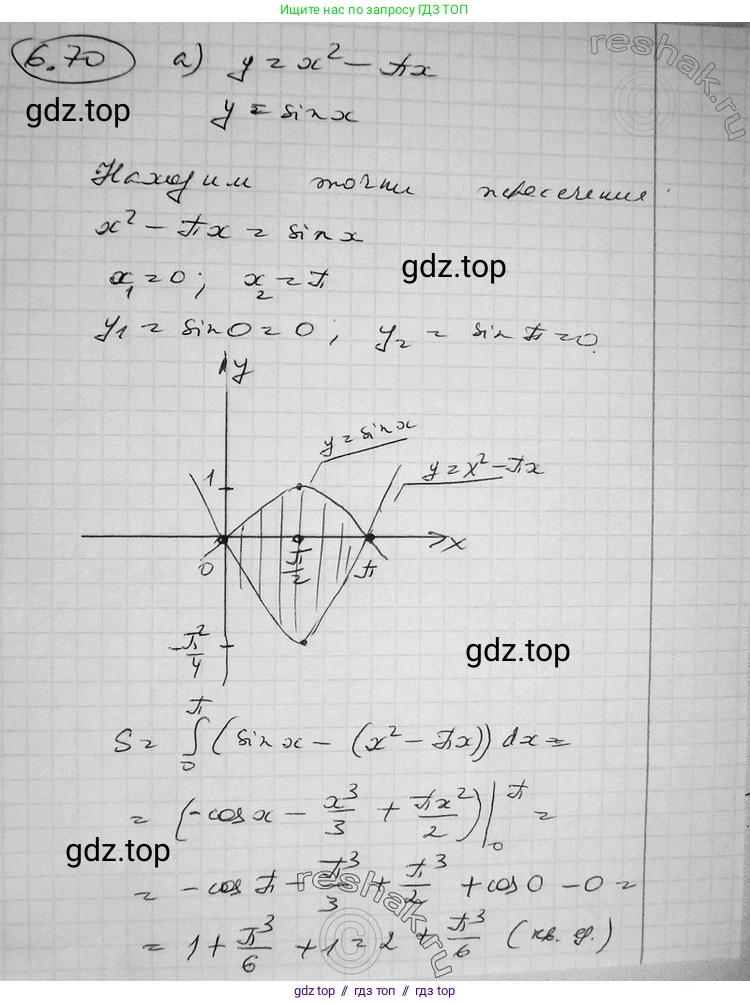 Ищите нас по запросу ГДЗ ТОП
6.70 а) y = x² − πx
gdz.top
y = sin x
reshak.ru
Находим точки пересечения:
x² − πx = sin x
gdz.top
x₁ = 0; x₂ = π
y₁ = sin 0 = 0; y₂ = sin π = 0.
y
y = sin x
1
y = x² − πx
0 π/2 π x
−π²/4
gdz.top
S = ∫₀^π (sin x − (x² − πx)) dx =
= (−cos x − x³/3 + πx²/2)|₀^π =
gdz.top
= −cos π − π³/3 + π³/2 + cos 0 − 0 =
reshak.ru
= 1 + π³/6 + 1 = 2 + π³/6 (кв. ед.)
gdz.top // гдз.топ // гдз.top